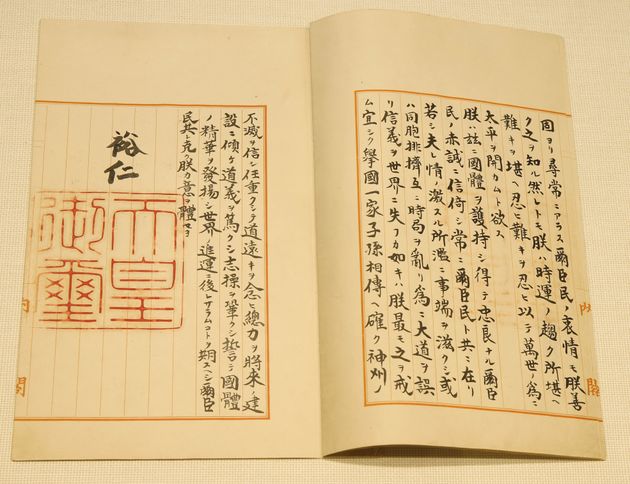 内閣
固ヨリ尋常ニアラス爾臣民ノ衷情モ朕善
ク之ヲ知ル然レトモ朕ハ時運ノ趨ク所堪ヘ
難キヲ堪ヘ忍ヒ難キヲ忍ヒ以テ萬世ノ爲ニ
太平ヲ開カムト欲ス
朕ハ茲ニ國體ヲ護持シ得テ忠良ナル爾臣
民ノ赤誠ニ信倚シ常ニ爾臣民ト共ニ在リ
若シ夫レ情ノ激スル所濫ニ事端ヲ滋クシ或
ハ同胞排擠互ニ時局ヲ亂リ爲ニ大道ヲ誤
リ信義ヲ世界ニ失フカ如キハ朕最モ之ヲ戒
ム宜シク擧國一家子孫相傳ヘ確ク神州
不滅ヲ信シ任重クシテ道遠キヲ念ヒ總力ヲ將來ノ建
設ニ傾ケ道義ヲ篤クシ志操ヲ鞏クシ誓テ國體
ノ精華ヲ發揚シ世界ノ進運ニ後レサラムコトヲ期スヘシ爾臣
民其レ克ク朕カ意ヲ體セヨ
裕仁
天皇
御璽
内閣